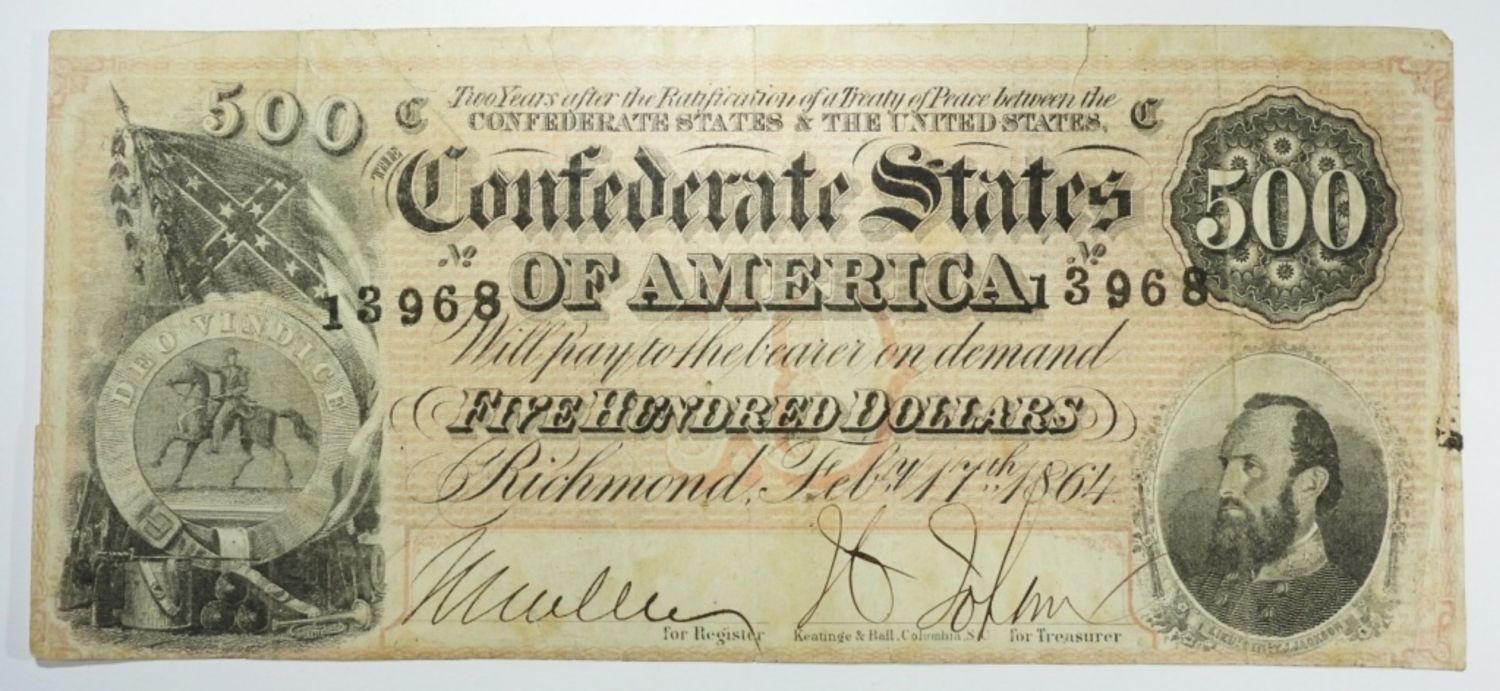 500 C Two Years after the Ratification of a Treaty of Peace between the C
CONFEDERATE STATES & THE UNITED STATES,
THE Confederate States
500
No No
13968 OF AMERICA 13968
DEO VINDICE
Will pay to the bearer on demand
FIVE HUNDRED DOLLARS
Richmond, Feby. 17th 1864
for Register Keatinge & Ball, Columbia, S.C. for Treasurer
JACKSON